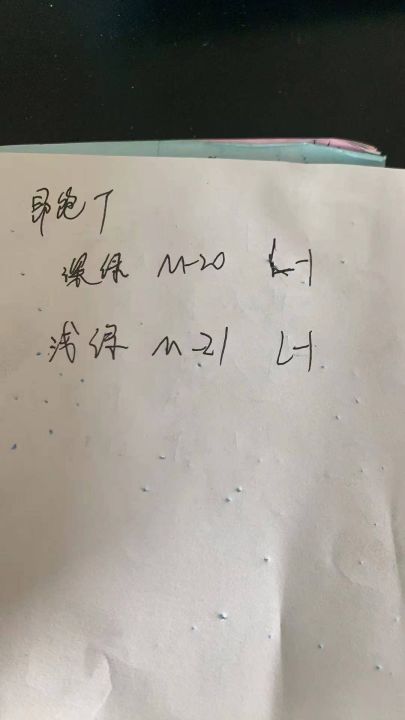 T
深绿 M-20 L-1
浅绿 M-21 L-1